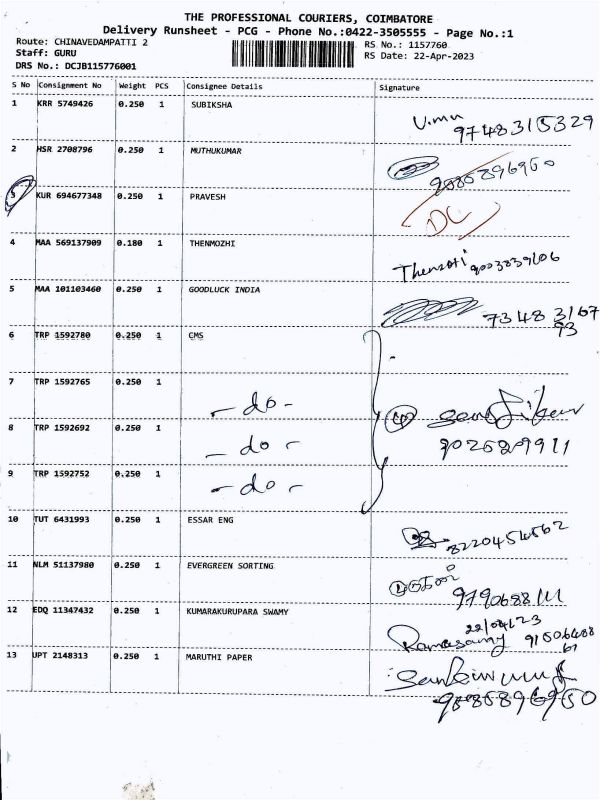 THE PROFESSIONAL COURIERS, COIMBATORE
Delivery Runsheet - PCG - Phone No.:0422-3505555 - Page No.:1
Route: CHINAVEDAMPATTI 2
Staff: GURU
DRS No.: DCJB115776001
RS No.: 1157760
RS Date: 22-Apr-2023
S No Consignment No Weight PCS Consignee Details Signature
1 KRR 5749426 0.250 1 SUBIKSHA
9748315329
2 HSR 2708796 0.250 1 MUTHUKUMAR
3 KUR 694677348 0.250 1 PRAVESH
DC
4 MAA 569137909 0.180 1 THENMOZHI
9003839106
5 MAA 101103460 0.250 1 GOODLUCK INDIA
73483167
93
6 TRP 1592780 0.250 1 CMS
7 TRP 1592765 0.250 1 - do -
8 TRP 1592692 0.250 1 - do -
9 TRP 1592752 0.250 1 - do -
10 TUT 6431993 0.250 1 ESSAR ENG
11 NLM 51137980 0.250 1 EVERGREEN SORTING
12 EDQ 11347432 0.250 1 KUMARAKURUPARA SWAMY
22/04/23
Ramasamy
13 UPT 2148313 0.250 1 MARUTHI PAPER
9085896950